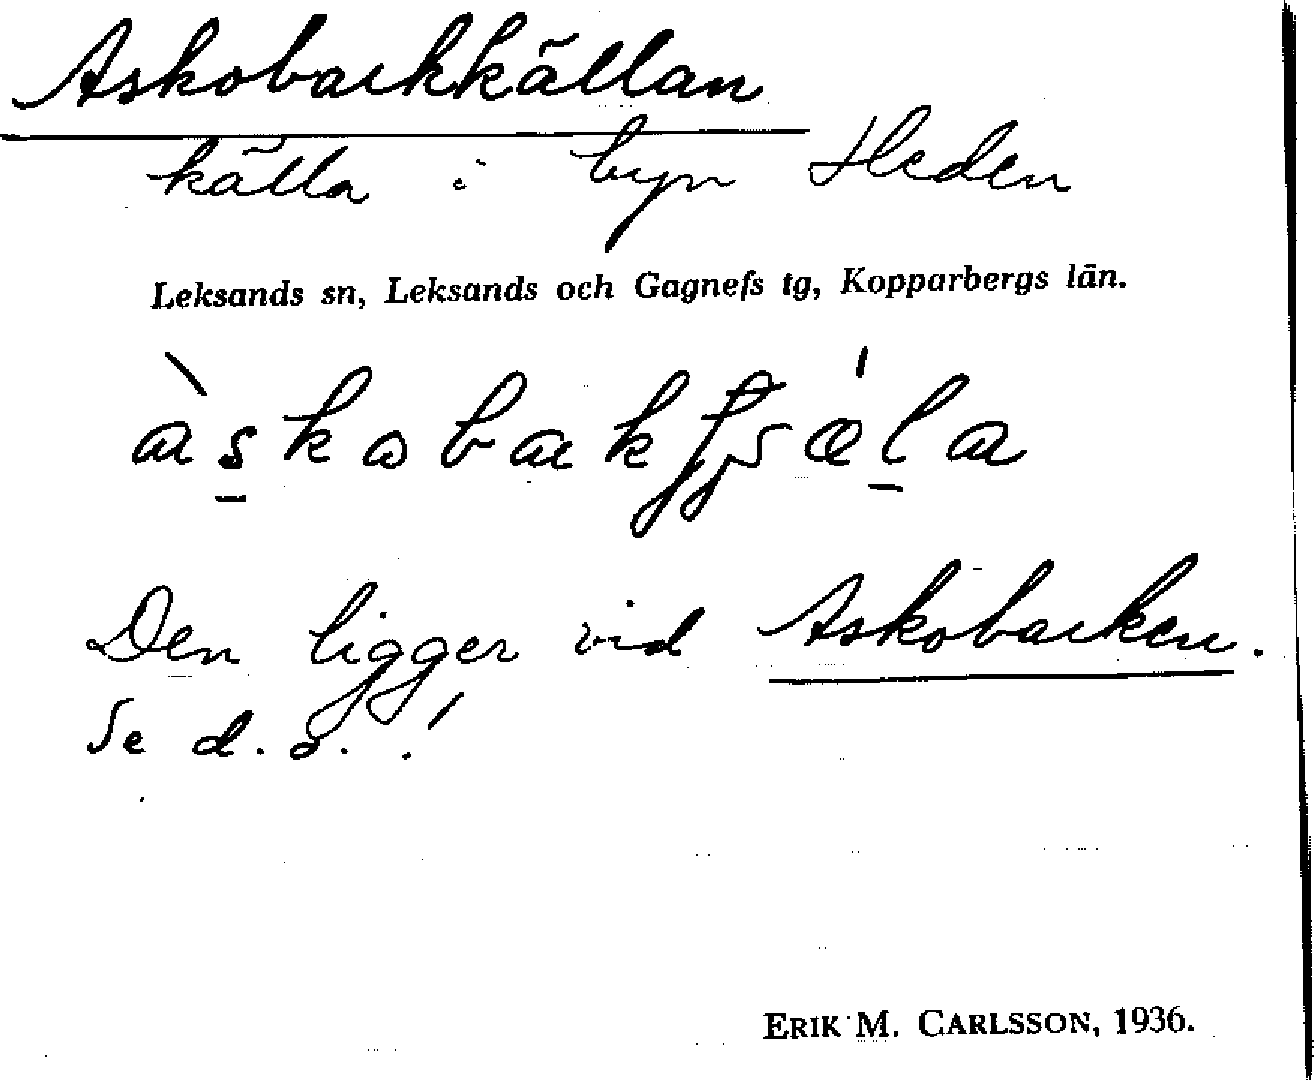 Askobackkällan
källa i byn Heden
Leksands sn, Leksands och Gagnefs tg, Kopparbergs län.
Den ligger vid Askobacken.
Se d. o. !
ERIK M. CARLSSON, 1936.